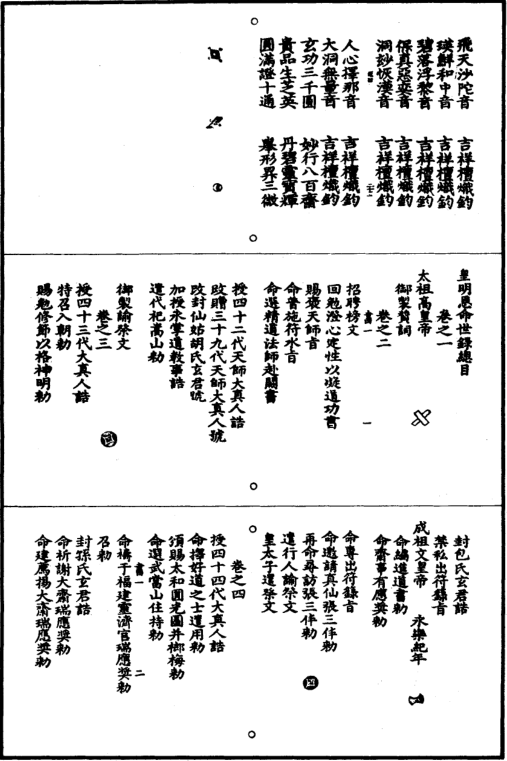 飛天沙陀音　吉祥檀熾鈞
瑛鮮和中音　吉祥檀熾鈞
碧落浮黎音　吉祥檀熾鈞
保真惡奕音　吉祥檀熾鈞
洞妙恢漠音　吉祥檀熾鈞
人心擇那音　吉祥檀熾鈞
大洞無量音　吉祥檀熾鈞
玄功三千圓　妙行八百齋
貴品生芝英　丹碧靈質輝
圓滿證十通　舉形昇三微
皇明恩命世錄總目
卷之一
太祖高皇帝
御製贊詞
卷之二
書一
一
招聘榜文
回勉澄心定性以凝道功書
賜褒天師旨
命普施符水旨
命選精道法師赴闕書
授四十二代天師大真人誥
改贈三十九代天師大真人號
改封仙姑胡氏玄君號
加授永掌道教事誥
遣代祀嵩山勑
御製諭祭文
卷之三
授四十三代大真人誥
特召入朝勑
賜勉修節以格神明勑
封包氏玄君誥
禁私出符籙旨
成祖文皇帝　永樂紀年
命編進道書勑
命齋事有應獎勑
命專出符籙旨
命邀請真仙張三仹勑
再命尋訪張三仹勑
遣行人諭祭文
皇太子遣祭文
卷之四
授四十四代大真人誥
命擇好道之士選用勑
頒賜太和圓光圖并榔梅勑
命選武當山住持勑
書一
二
命禱于福建靈濟宮瑞應獎勑
召勑
封孫氏玄君誥
命祈謝大齋瑞應獎勑
命建薦揚大齋瑞應獎勑